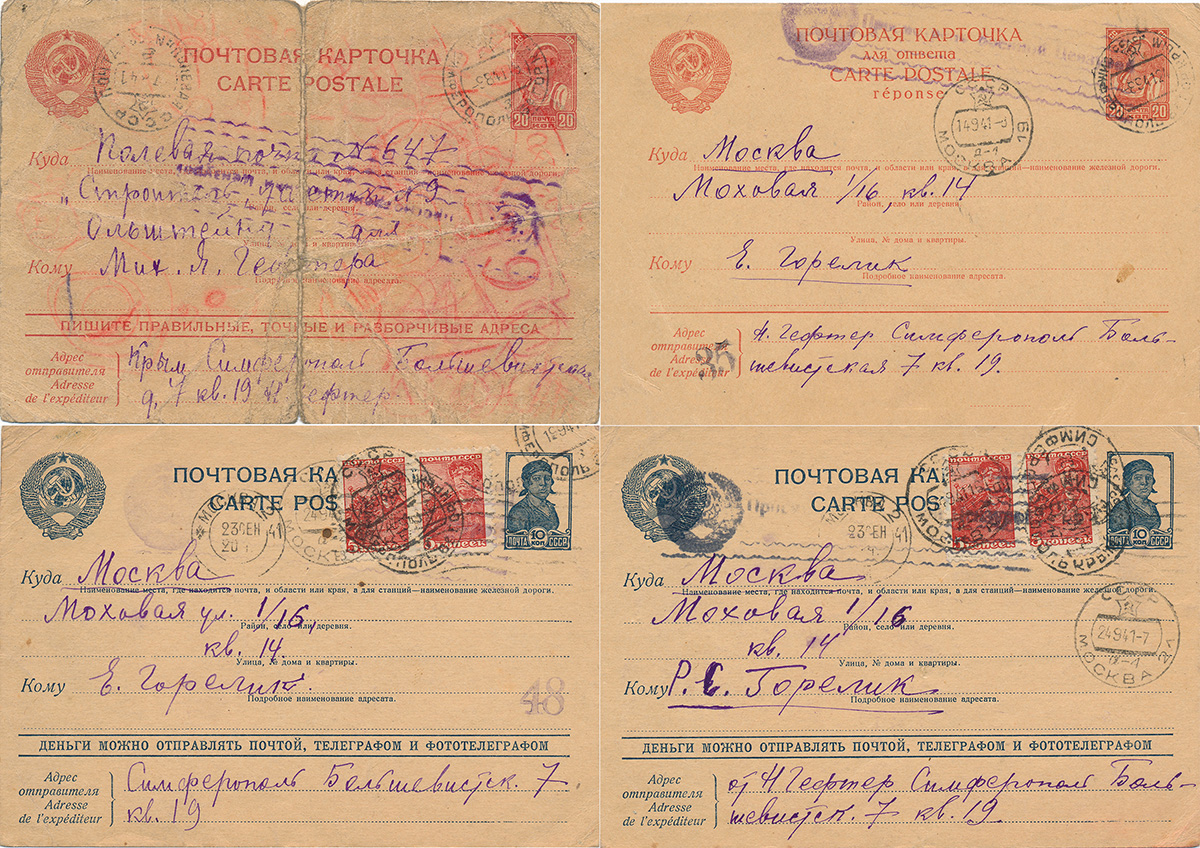 ПОЧТОВАЯ КАРТОЧКА
CARTE POSTALE
20 ПОЧТА 20
КОП.
СИМФЕРОПОЛЬ
Куда Полевая почта № 647
Наименование места, где находится почта, и области или края, а для станций—наименование железной дороги.
„Строитель участка № 9
Район, село или деревня.
для
Улица, № дома и квартиры.
Кому Мих. Я. Гефтера
Подробное наименование адресата.
ПИШИТЕ ПРАВИЛЬНЫЕ, ТОЧНЫЕ И РАЗБОРЧИВЫЕ АДРЕСА
Адрес отправителя
Adresse de l'expéditeur
Крым Симферополь Большевистская
д. 7 кв. 19 Гефтер
ПОЧТОВАЯ КАРТОЧКА
для ответа
CARTE POSTALE
réponse
20 ПОЧТА 20
КОП.
СССР
14941-8
МОСКВА 19
Куда Москва
Наименование места, где находится почта, и области или края, а для станций—наименование железной дороги.
Моховая 1/16, кв. 14
Район, село или деревня.
Улица, № дома и квартиры.
Кому Е. Горелик
Подробное наименование адресата.
Адрес отправителя
Adresse de l'expéditeur
35
Н. Гефтер Симферополь Боль-
шевистская 7 кв. 19.
ПОЧТОВАЯ КА
CARTE POS
ПОЧТА СССР
10 КОП
ПОЧТА СССР
23 СЕН 41
МОСКВА
Куда Москва
Наименование места, где находится почта, и области или края, а для станций—наименование железной дороги.
Моховая ул. 1/16,
Район, село или деревня.
кв. 14.
Улица, № дома и квартиры.
Кому Е. Горелик.
Подробное наименование адресата.
48
ДЕНЬГИ МОЖНО ОТПРАВЛЯТЬ ПОЧТОЙ, ТЕЛЕГРАФОМ И ФОТОТЕЛЕГРАФОМ
Адрес отправителя
Adresse de l'expéditeur
Симферополь Большевистск. 7
кв. 19
ПОЧТОВАЯ КА
CARTE POS
ПОЧТА СССР
5 КОПЕЕК
10 КОП
ПОЧТА СССР
23 СЕН 41
Куда Москва
Наименование места, где находится почта, и области или края, а для станций—наименование железной дороги.
Моховая 1/16
Район, село или деревня.
кв. 14
Улица, № дома и квартиры.
СССР
24941-7
МОСКВА
Кому Р. Е. Горелик
Подробное наименование адресата.
ДЕНЬГИ МОЖНО ОТПРАВЛЯТЬ ПОЧТОЙ, ТЕЛЕГРАФОМ И ФОТОТЕЛЕГРАФОМ
Адрес отправителя
Adresse de l'expéditeur
от Н Гефтер Симферополь Боль-
шевистск. 7 кв. 19.